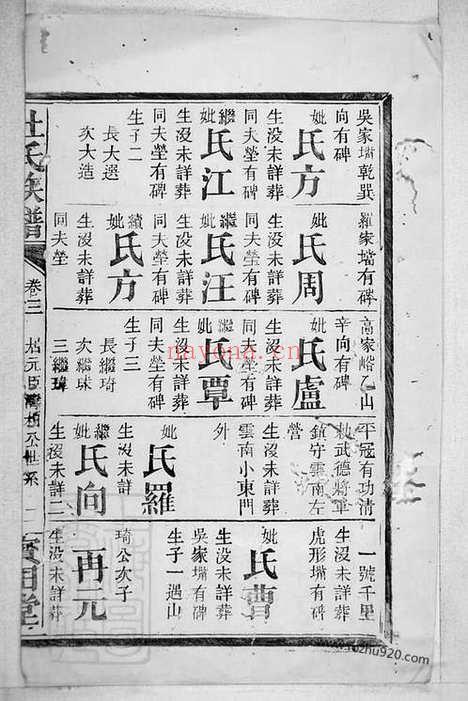 吳家塆乾巽
向有碑
妣氏方
生没未詳葬
同夫塋有碑
繼妣氏江
生没未詳葬
同夫塋有碑
生子二
長大選
次大造
羅家塆有碑
妣氏周
生没未詳葬
同夫塋有碑
繼妣氏汪
生没未詳葬
同夫塋有碑
續妣氏方
生没未詳葬
同夫塋
高家峪乙山
辛向有碑
妣氏盧
生没未詳葬
同夫塋有碑
繼妣氏覃
生没未詳葬
同夫塋有碑
生子三
長繼琦
次繼球
三繼瑋
平冠有功清
勅武德將軍
鎮守雲南左
營
生没未詳葬
雲南小東門
外
妣氏羅
生没未詳
生子三
繼妣氏向
生没未詳二
一號千里
生没未詳葬
虎形塆有碑
妣氏曹
生没未詳葬
吳家塆有碑
生子一遇山
琦公次子
再元
生没未詳葬
杜氏族譜
卷三
公世系 一
堂
nayona.cn
www.kozhu920.com